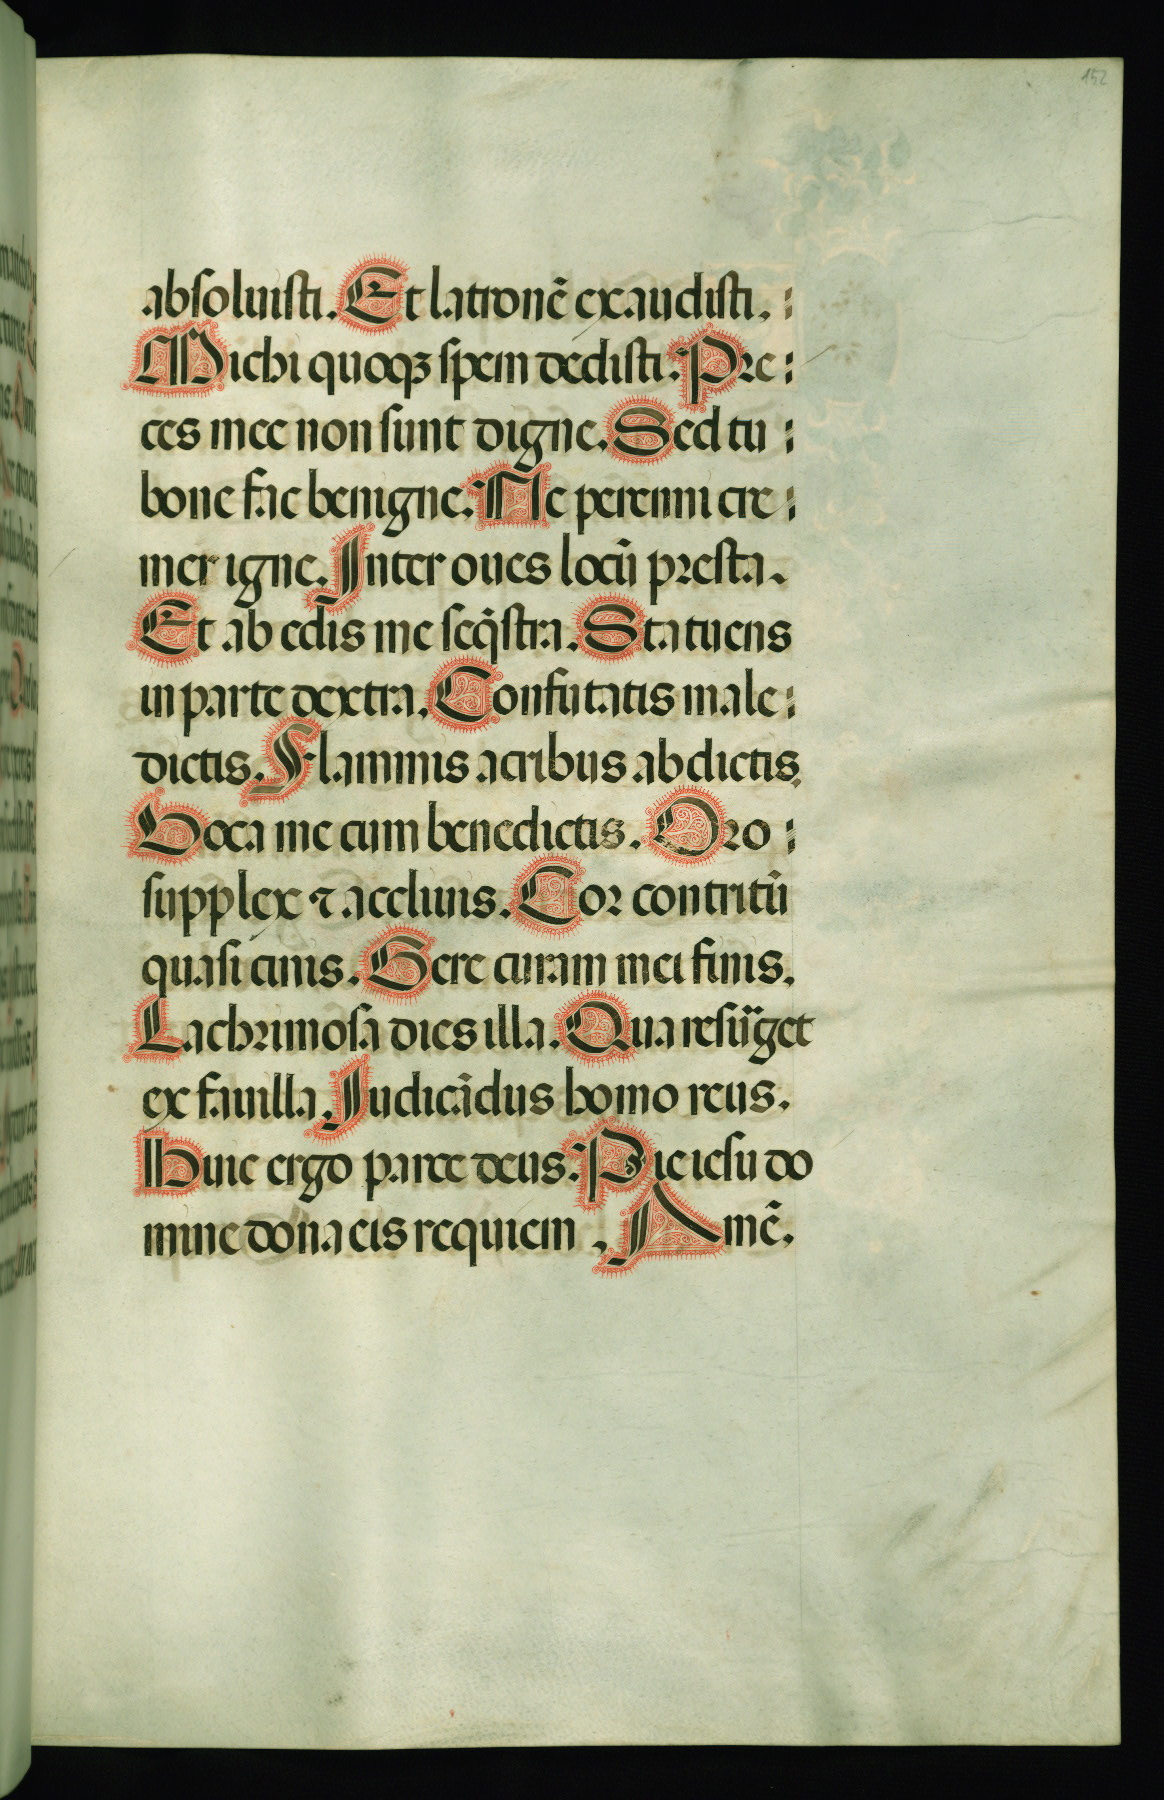 152
absoluisti. Et latronē exaudisti.
Michi quoqꝫ spem dedisti. Pre
ces mee non sunt digne. Sed tu
bone fac benigne. Ne perenni cre
mer igne. Inter oues locū presta.
Et ab edis me seq̄stra. Statuens
in parte dextra. Confutatis male
dictis. Flammis acribus abdictis.
Uoca me cum benedictis. Oro
supplex ⁊ acclinis. Cor contritū
quasi cinis. Gere curam mei finis.
Lachrimosa dies illa. Qua resūget
ex fauilla. Judicādus homo reus.
Huic ergo parce deus. Pie iesu do
mine dona eis requiem. Amē.